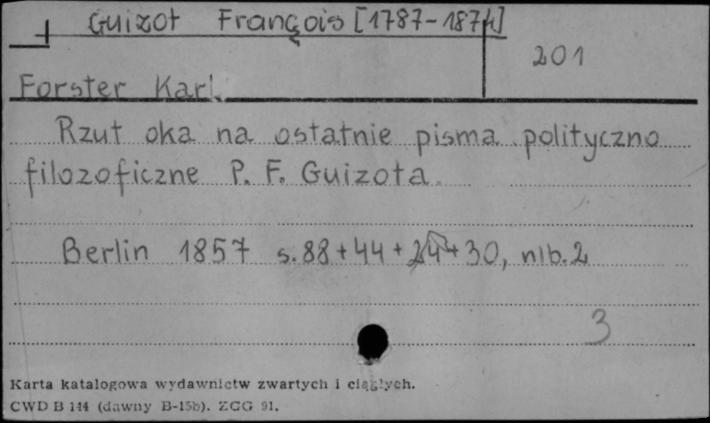 Guizot François [1787-1874]
201
Forster Karl.
Rzut oka na ostatnie pisma polityczno
filozoficzne P. F. Guizota
Berlin 1857 s. 88+44+24+30, nlb. 2
3
Karta katalogowa wydawnictw zwartych i ciągłych.
CWD B 144 (dawny B-15b). ZGG 91.